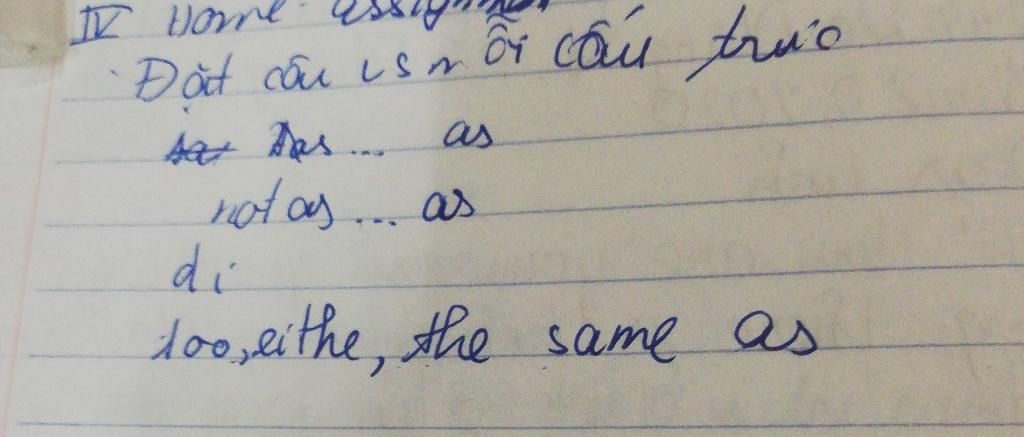 IV Home assignmen
Đặt câu vs mỗi cấu trúc
As... as
not as ... as
di
too, eithe, the same as